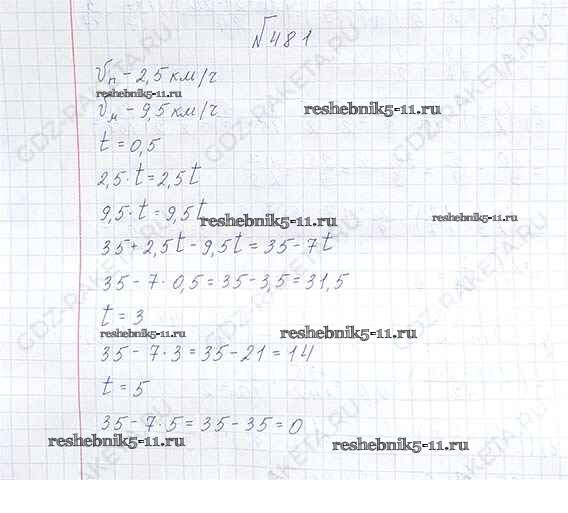 №481
Vп - 2,5 км/ч
reshebnik5-11.ru
Vм - 9,5 км/ч
reshebnik5-11.ru
t = 0,5
2,5 · t = 2,5t
9,5 · t = 9,5t
reshebnik5-11.ru
reshebnik5-11.ru
35 + 2,5t - 9,5t = 35 - 7t
35 - 7 · 0,5 = 35 - 3,5 = 31,5
t = 3
reshebnik5-11.ru
reshebnik5-11.ru
35 - 7 · 3 = 35 - 21 = 14
t = 5
35 - 7 · 5 = 35 - 35 = 0
reshebnik5-11.ru
reshebnik5-11.ru
GDZ-RAKETA.RU
GDZ-RAKETA.RU
GDZ-RAKETA.RU
GDZ-RAKETA.RU
GDZ-RAKETA.RU
GDZ-RAKETA.RU